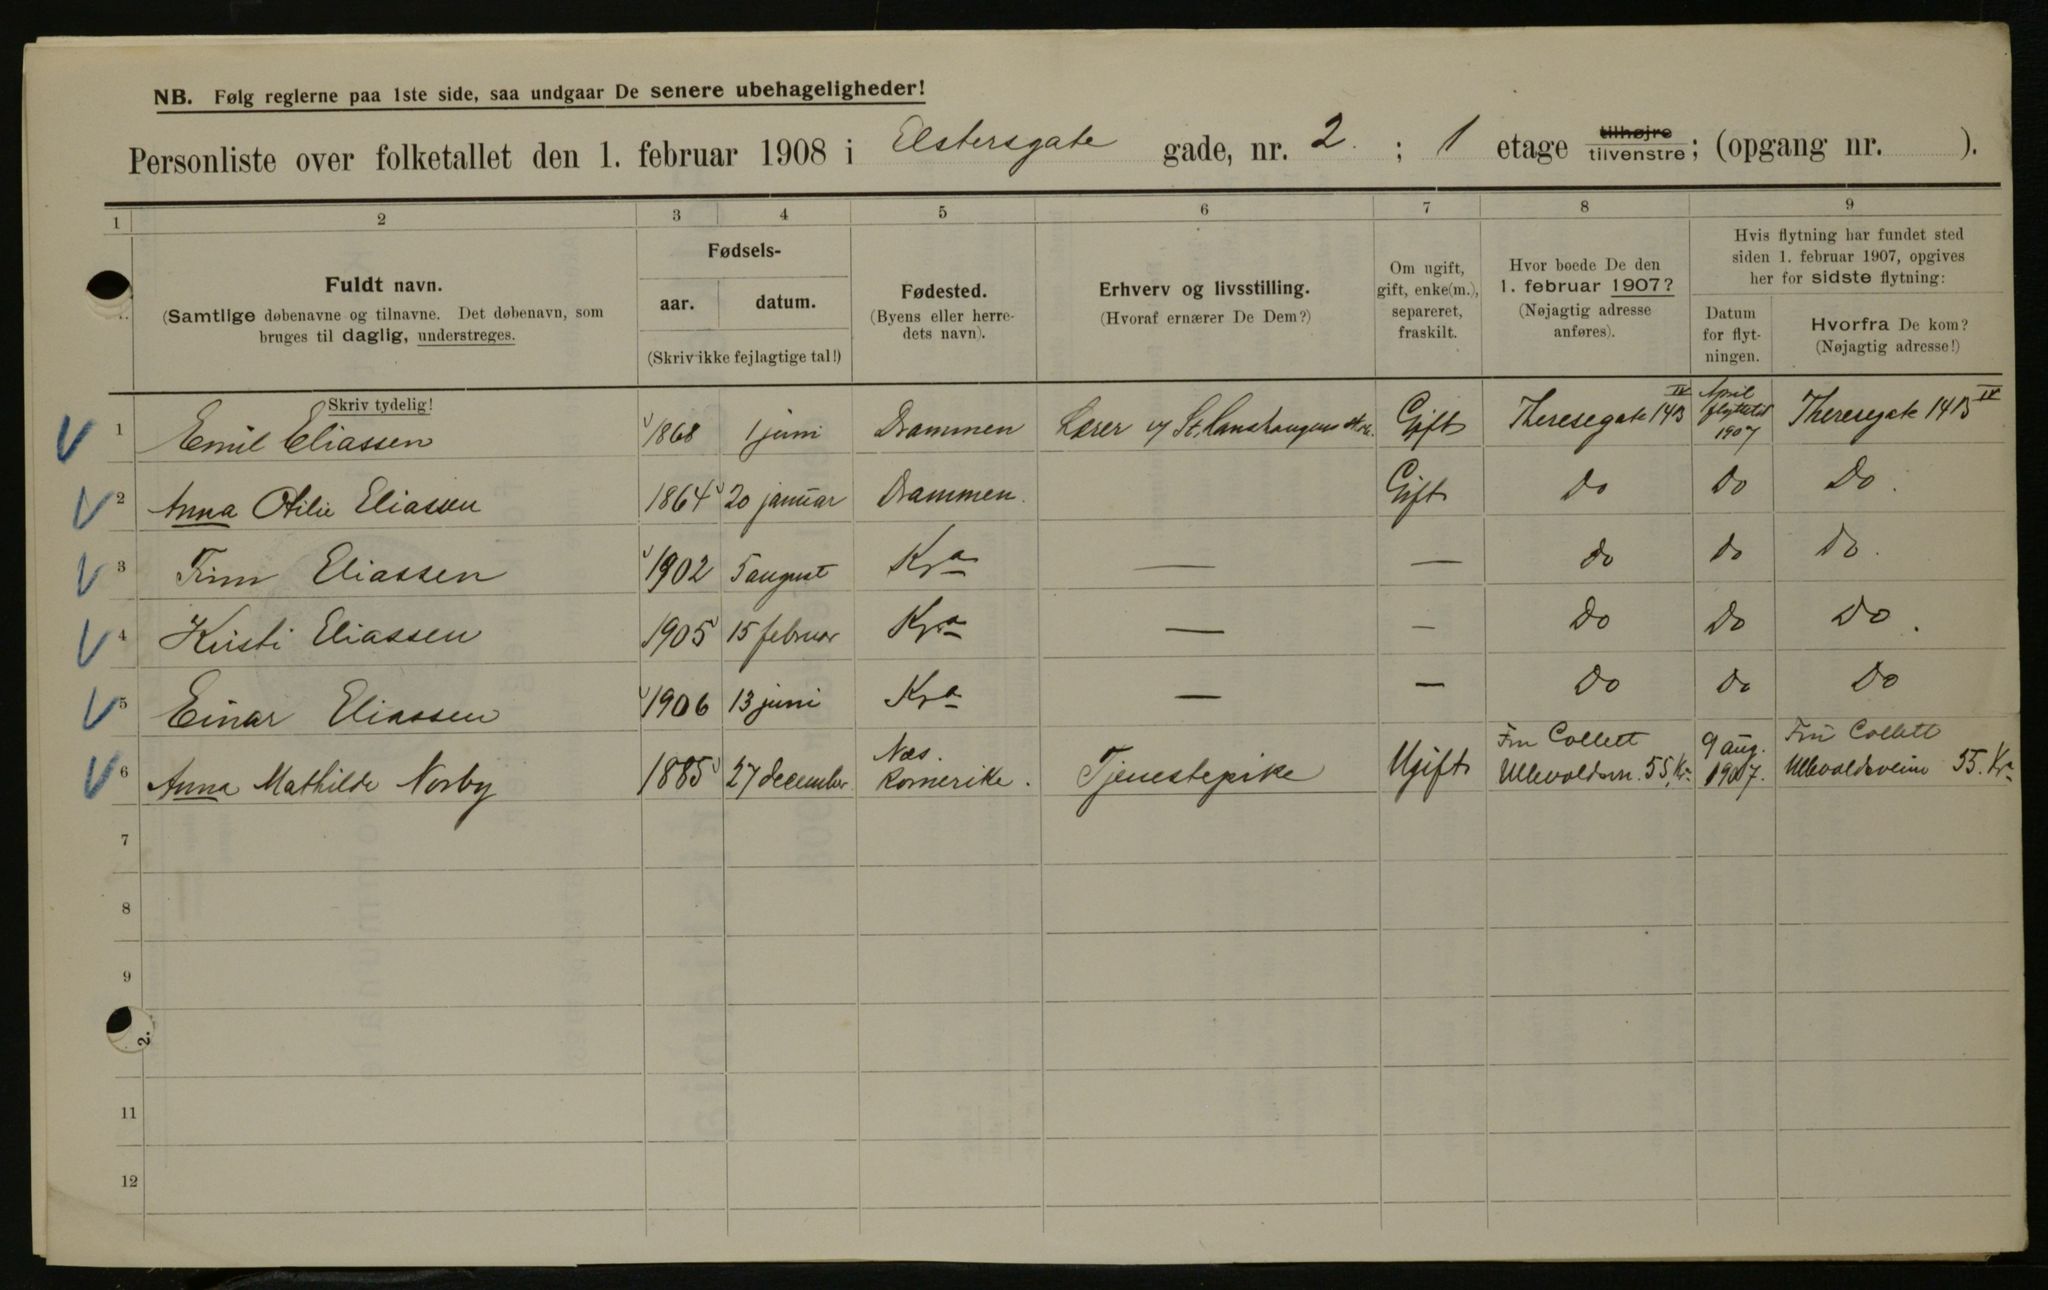 NB. Følg reglerne paa 1ste side, saa undgaar De senere ubehageligheder!
Personliste over folketallet den 1. februar 1908 i Elstersgate gade, nr. 2. ; 1 etage tilhøjre tilvenstre; (opgang nr. ).
1 2 3 4 5 6 7 8 9
Fuldt navn.
(Samtlige døbenavne og tilnavne. Det døbenavn, som
bruges til daglig, understreges.
Skriv tydelig!
Fødsels-
aar. datum.
(Skriv ikke fejlagtige tal!)
Fødested.
(Byens eller herre-
dets navn).
Erhverv og livsstilling.
(Hvoraf ernærer De Dem?)
Om ugift,
gift, enke(m.),
separeret,
fraskilt.
Hvor boede De den
1. februar 1907?
(Nøjagtig adresse
anføres).
Hvis flytning har fundet sted
siden 1. februar 1907, opgives
her for sidste flytning:
Datum
for flyt-
ningen.
Hvorfra De kom?
(Nøjagtig adresse!)
1 Emil Eliassen 1868 1 juni Drammen Lærer v/ St. Hanshaugens Gift Theresegate 14B IV April flyttet 1907 Theresegate 14B IV
2 Anna Otilie Eliassen 1864 20 januar Drammen. Gift Do Do Do.
3 Finn Eliassen 1902 5 august Kra — — Do Do Do.
4 Kirsti Eliassen 1905 15 februar Kra — — Do Do Do.
5 Einar Eliassen 1906 13 juni Kra — — Do Do Do
6 Anna Mathilde Norby 1885 27 december Næs. Romerike. Tjenestepike Ugift Fru Collett Ullevoldsvn. 55, Kr. 9 aug. 1907. Fru Collett Ullevoldsveien 55. Kra
7
8
9
2.
11
12